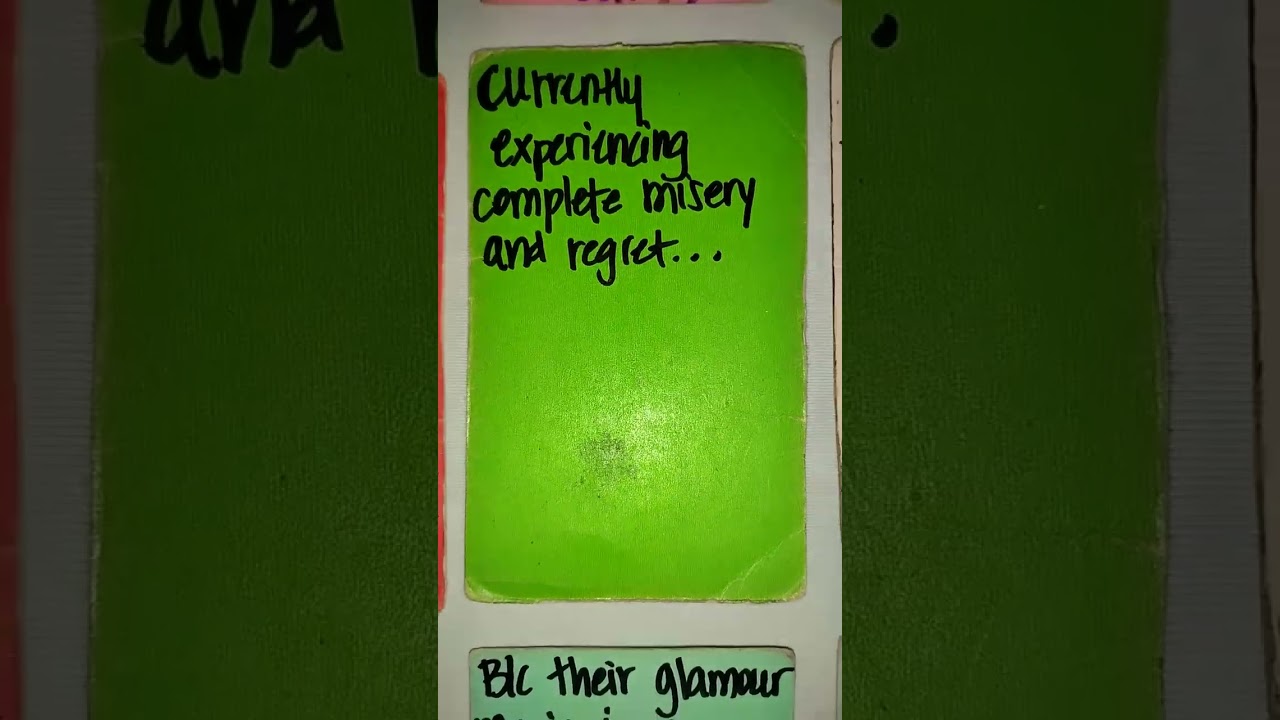 Currently
experiencing
complete misery
and regret...
B/c their glamour